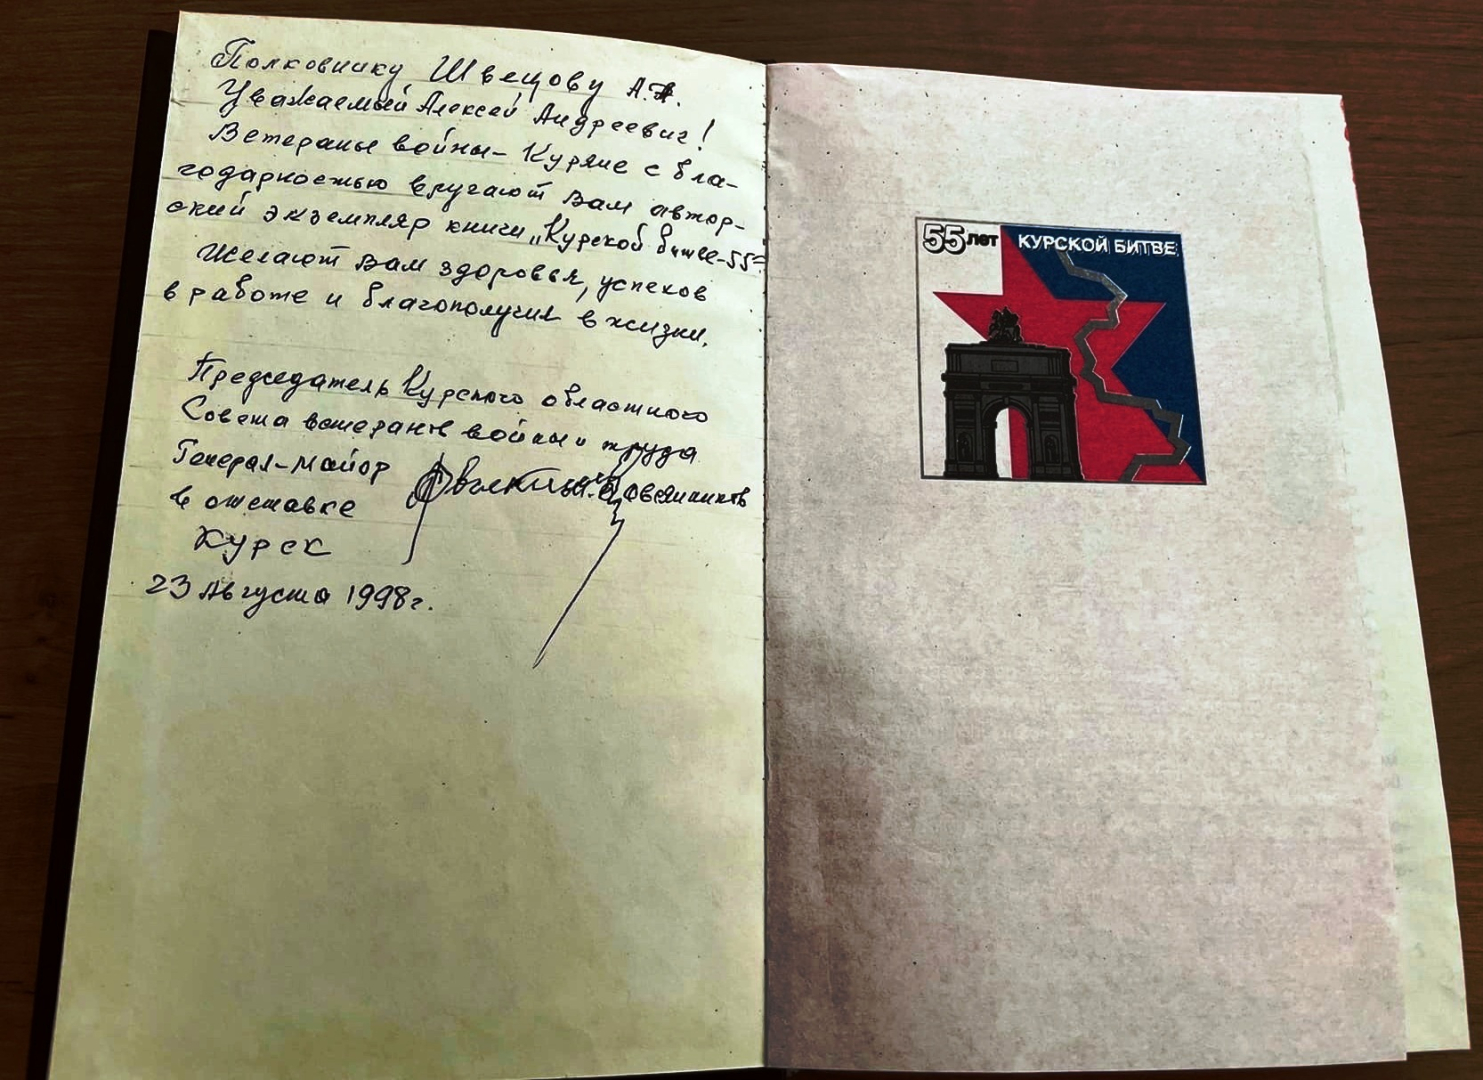 Полковнику Швецову А.А.
Уважаемый Алексей Андреевич!
Ветераны войны - Куряне с бла-
годарностью вручают Вам автор-
ский экземпляр книги „Курской битве-55"
Желают Вам здоровья, успехов
в работе и благополучия в жизни.
Председатель Курского областного
Совета ветеранов войны и труда
Генерал-майор Овсянников
в отставке
Курск
23 Августа 1998г.
55 лет КУРСКОЙ БИТВЕ